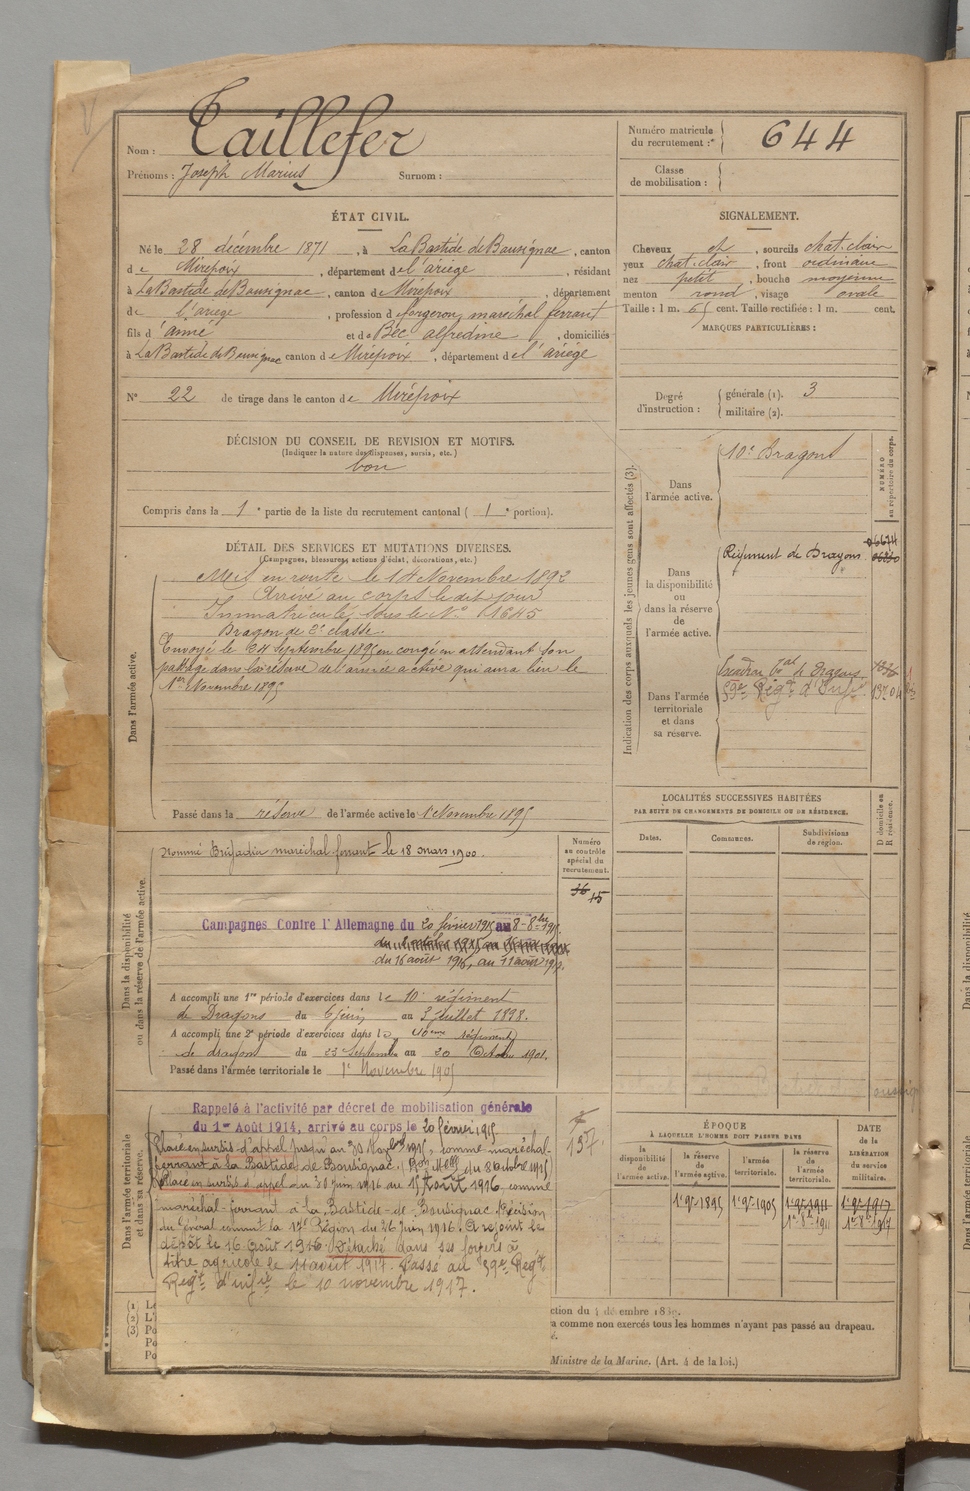 Nom : Taillefer
Prénoms : Joseph Marius Surnom :
Numéro matricule du recrutement : 644
Classe de mobilisation :
ÉTAT CIVIL.
Né le 28 décembre 1871, à La Bastide de Bousignac, canton
de Mirepoix, département de l'ariège, résidant
à La Bastide de Bousignac, canton de Mirepoix, département
de l'ariege, profession de forgeron maréchal ferrant
fils d'aimé et de Bec alfredine, domiciliés
à La Bastide de Bousignac canton de Mirepoix, département de l'ariège
N° 22 de tirage dans le canton de Mirepoix
SIGNALEMENT.
Cheveux ch, sourcils chat. clair
yeux chat. clair, front ordinaire
nez petit, bouche moyenne
menton rond, visage ovale
Taille : 1 m. 65 cent. Taille rectifiée : 1 m. cent.
MARQUES PARTICULIÈRES :
Degré d'instruction : générale (1). 3
militaire (2).
DÉCISION DU CONSEIL DE REVISION ET MOTIFS.
(Indiquer la nature des dispenses, sursis, etc.)
bon
Compris dans la 1e partie de la liste du recrutement cantonal ( 1e portion).
DÉTAIL DES SERVICES ET MUTATIONS DIVERSES.
(Campagnes, blessures, actions d'éclat, décorations, etc.)
Dans l'armée active.
Mis en route le 14 Novembre 1892
Arrivé au corps le dit jour
Immatriculé sous le N° 1645
Dragon de 2e classe.
Envoyé le 24 Septembre 1895 en congé en attendant son
passage dans la réserve de l'armée active qui aura lieu le
1er Novembre 1895
Passé dans la réserve de l'armée active le 1 Novembre 1895
Indication des corps auxquels les jeunes gens sont affectés (3).
NUMÉRO au répertoire du corps.
Dans l'armée active.
10e Dragons
Dans la disponibilité ou dans la réserve de l'armée active.
Régiment de Dragons
Dans l'armée territoriale et dans sa réserve.
Escadron de Dragons
59e Régt d'Infie
LOCALITÉS SUCCESSIVES HABITÉES
PAR SUITE DE CHANGEMENTS DE DOMICILE OU DE RÉSIDENCE.
Dates. Communes. Subdivisions de région. D domicile ou R résidence.
Dans la disponibilité ou dans la réserve de l'armée active.
Nommé Brigadier maréchal ferrant le 18 mars 1900.
Numéro au contrôle spécial du recrutement.
36 15
Campagnes Contre l'Allemagne du 20 février 1915 au 8-8bre 1915
du 16 août 1916, au 11 août 1917.
A accompli une 1re période d'exercices dans le 10e régiment
de Dragons du 6 juin au 3 Juillet 1898.
A accompli une 2e période d'exercices dans le 10eme régiment
de dragons du 23 Septembre au 20 Octobre 1901.
Passé dans l'armée territoriale le 1er Novembre 1905
Dans l'armée territoriale et dans sa réserve.
Rappelé à l'activité par décret de mobilisation générale
du 1er Août 1914, arrivé au corps le 20 février 1915
Placé en sursis d'appel jusqu'au 30 Novbre 1915, comme maréchal-
ferrant à la Bastide de Bousignac, du 8 octobre 1915
Placé en sursis d'appel du 30 Juin 1916 au 15 Août 1916, comme
maréchal-ferrant à la Bastide-de-Bousignac Décision
du Général command la 17e Région du 26 Juin 1916. A rejoint le
dépôt le 16 août 1916. Détaché dans ses foyers à
titre agricole le 11 août 1917. Passé au 59e Régt
Régt d'infie le 10 novembre 1917.
137
ÉPOQUE
À LAQUELLE L'HOMME DOIT PASSER DANS
la disponibilité de l'armée active. la réserve de l'armée active. l'armée territoriale. la réserve de l'armée territoriale.
DATE de la LIBÉRATION du service militaire.
1er 9bre 1895 1er 9bre 1905 1er 9bre 1911 1er 9bre 1917
1er 8bre 1911 1er 8bre 1917
(1) Le
(2) L'
(3) Po
Po
Po
ction du 4 décembre 1889.
a comme non exercés tous les hommes n'ayant pas passé au drapeau.
é.
Ministre de la Marine. (Art. 4 de la loi.)